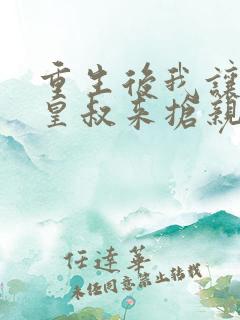 重生後我讓
皇叔來搶親
任達華
未經同意禁止轉載